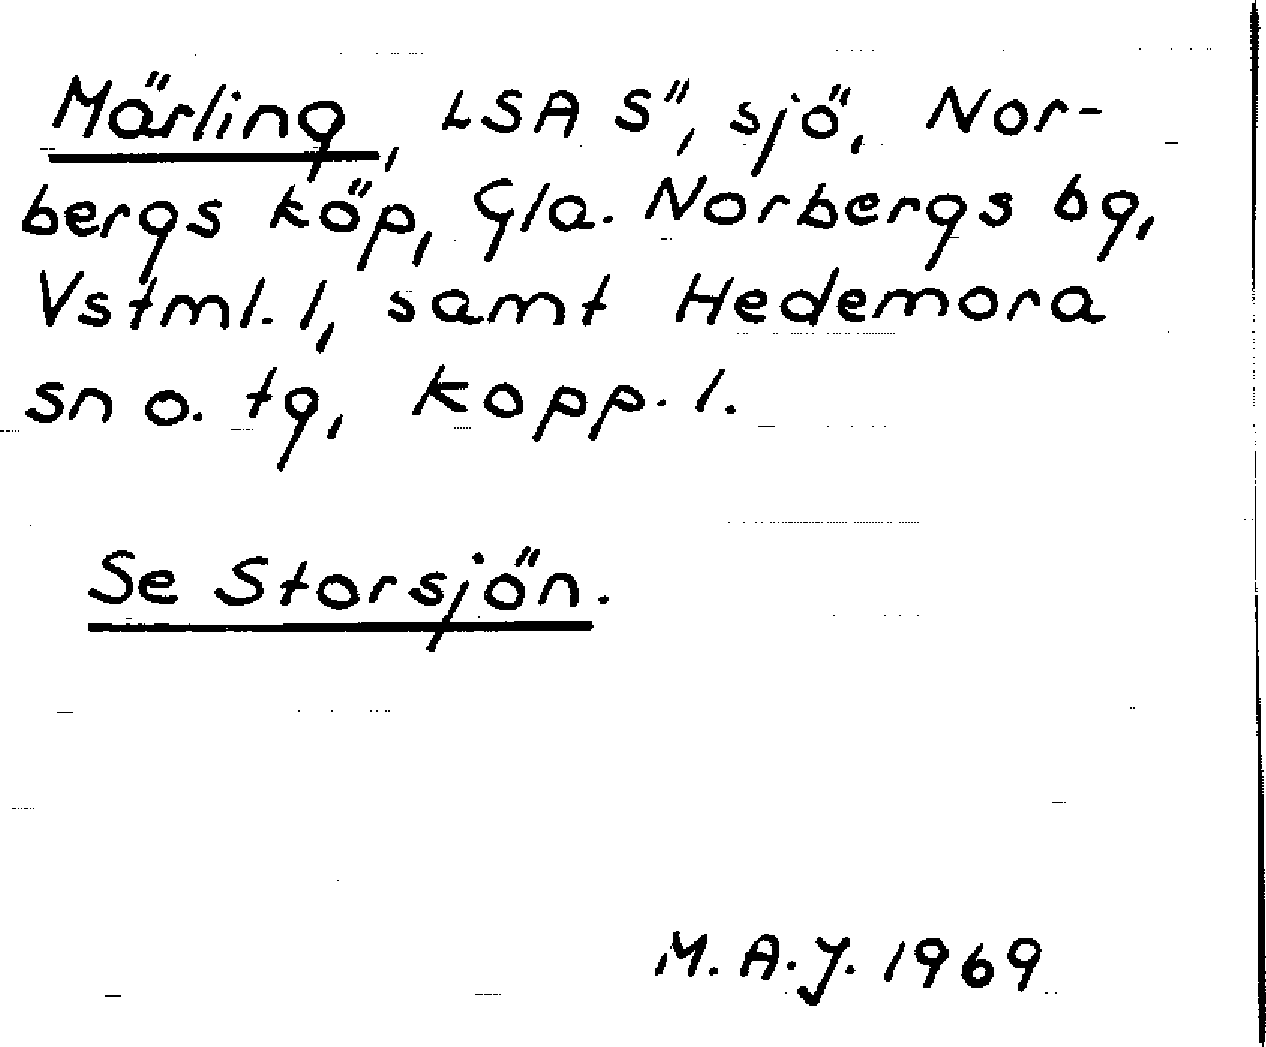 Märling, LSA S", sjö, Nor-
bergs köp, Gla. Norbergs bg,
Vstml. l, samt Hedemora
sn o. tg, Kopp. l.
Se Storsjön.
M.A.J. 1969